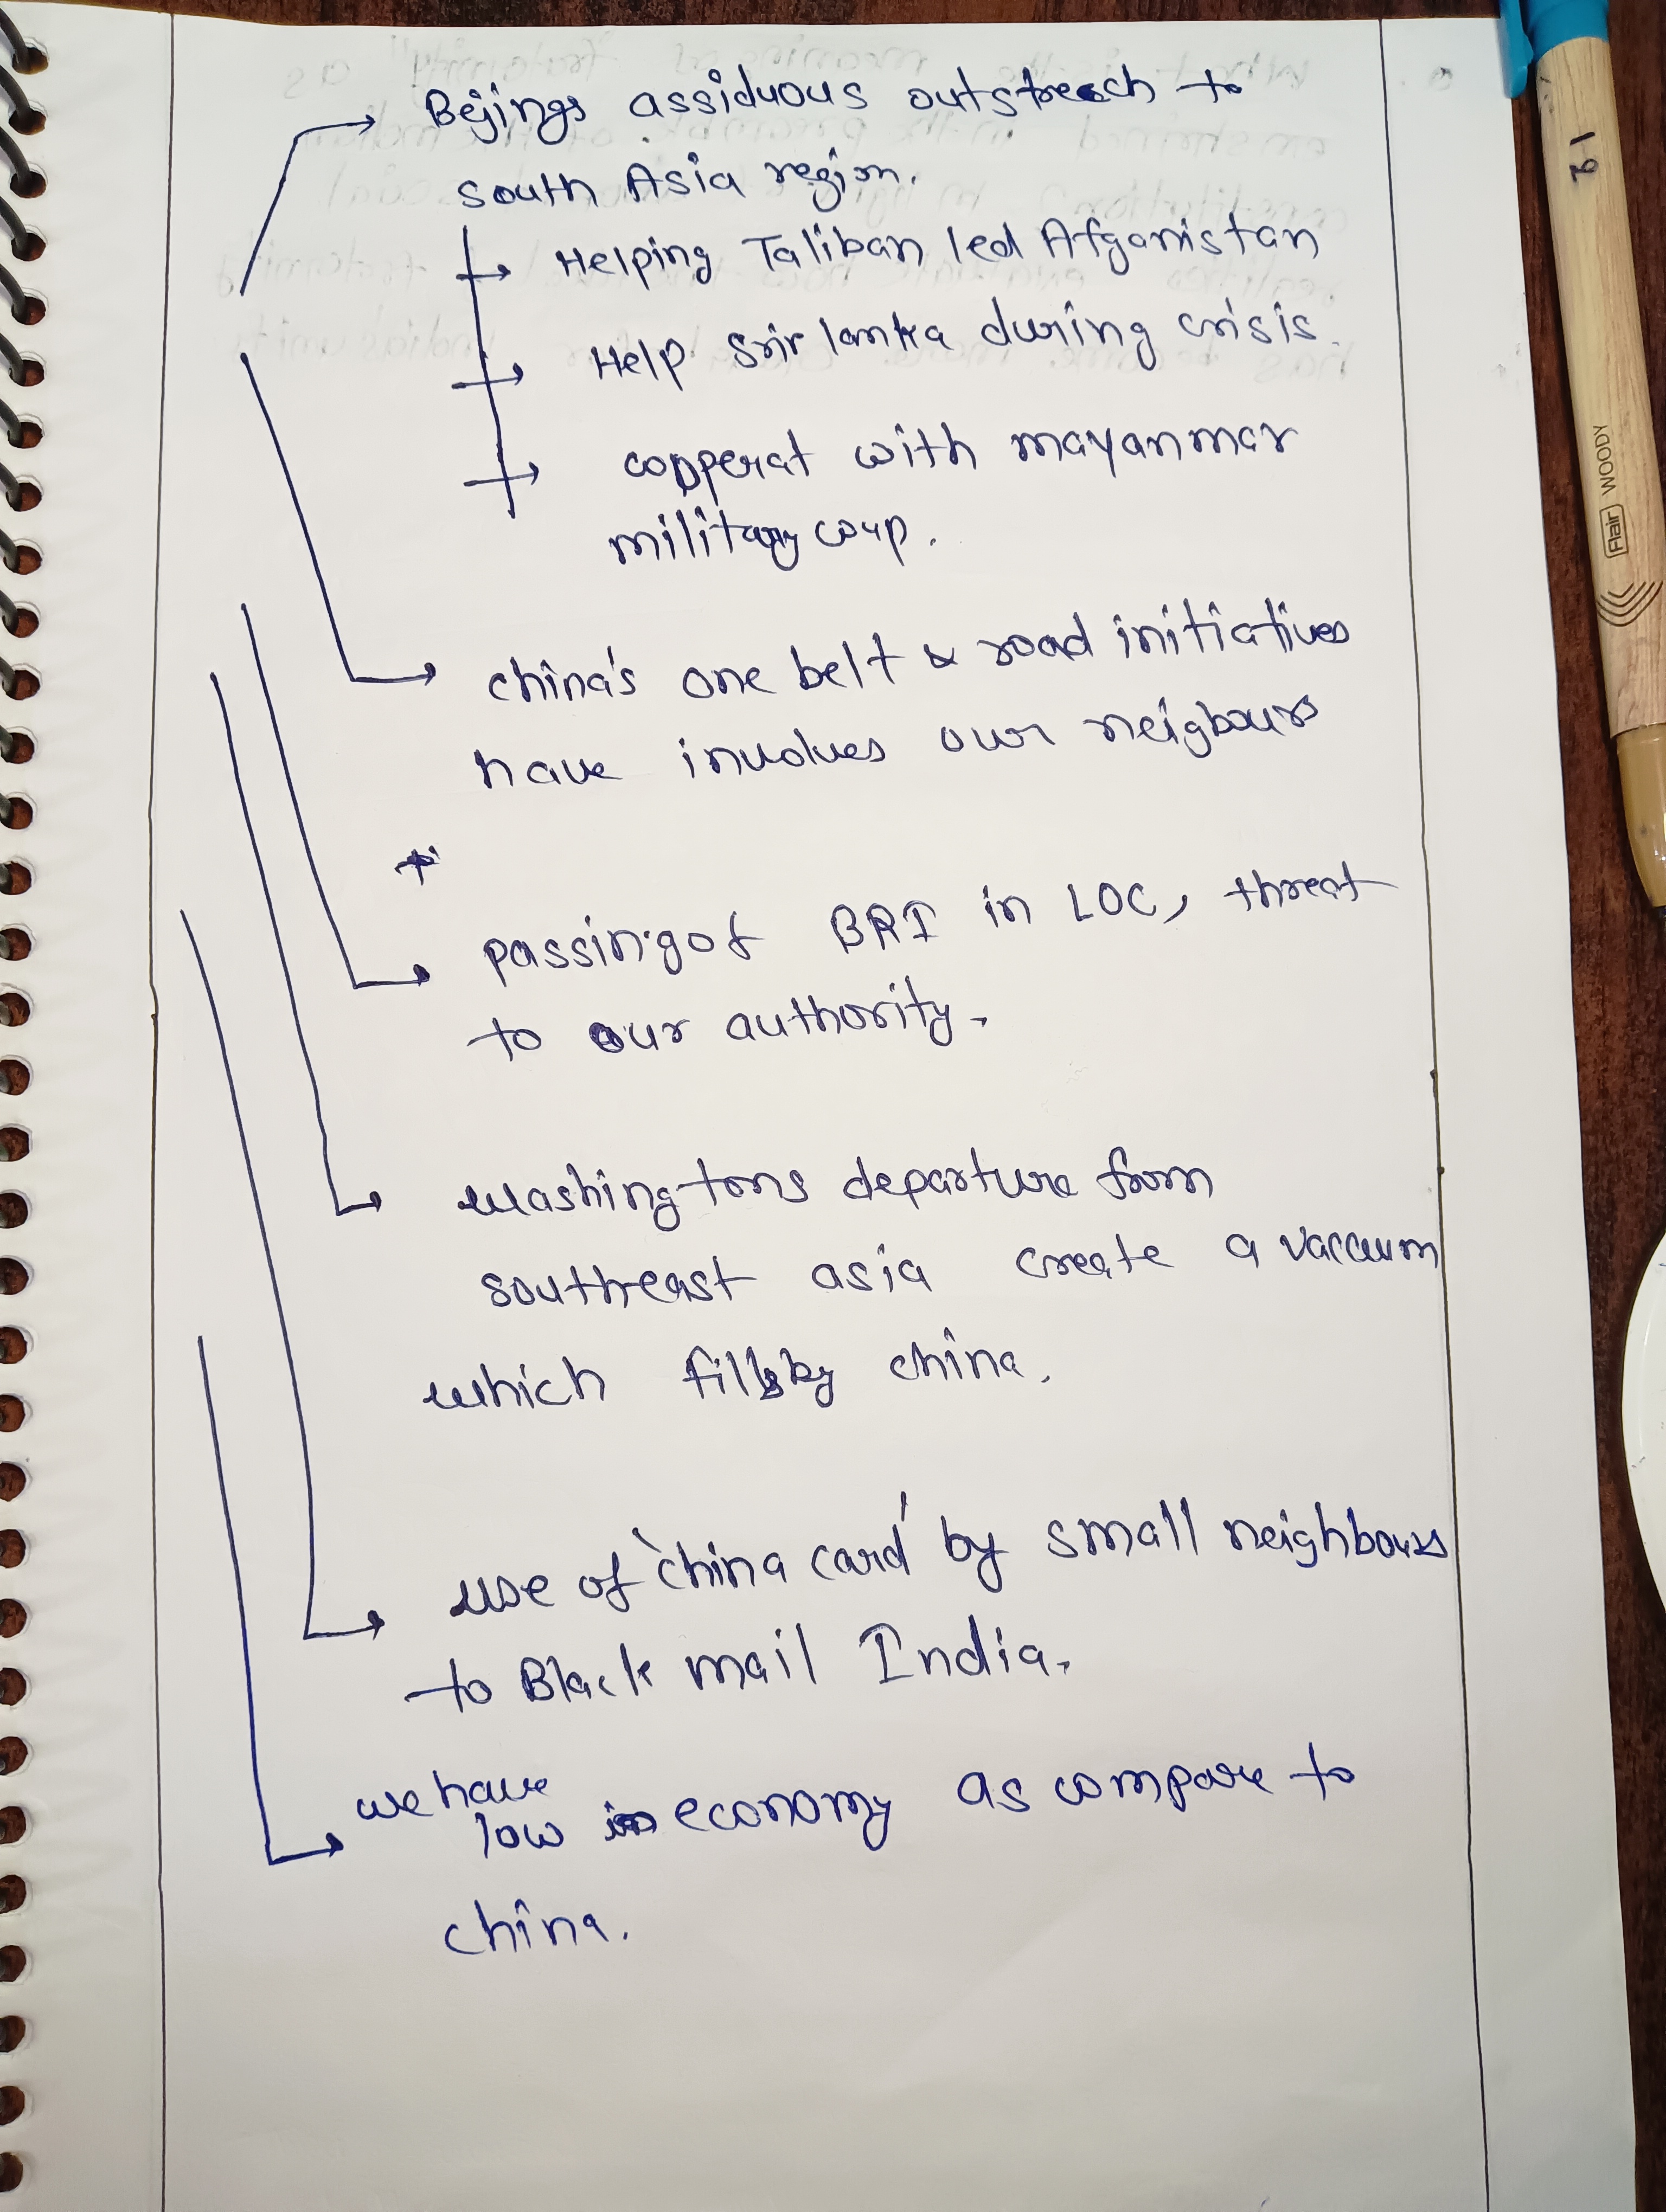 Bejings assiduous outstreach to
south Asia region.
Helping Taliban led Afganistan
Help srir lanka during crisis.
copperat with mayanmar
military coup.
china's one belt & road initiatives
have involves our neigbours
passing of BRI in LOC, threat
to our authority.
washingtons departure from
southeast asia create a vaccum
which fills by china.
use of 'china card' by small neighbours
to Black mail India.
we have
low in economy as compare to
china.
Flair WOODY